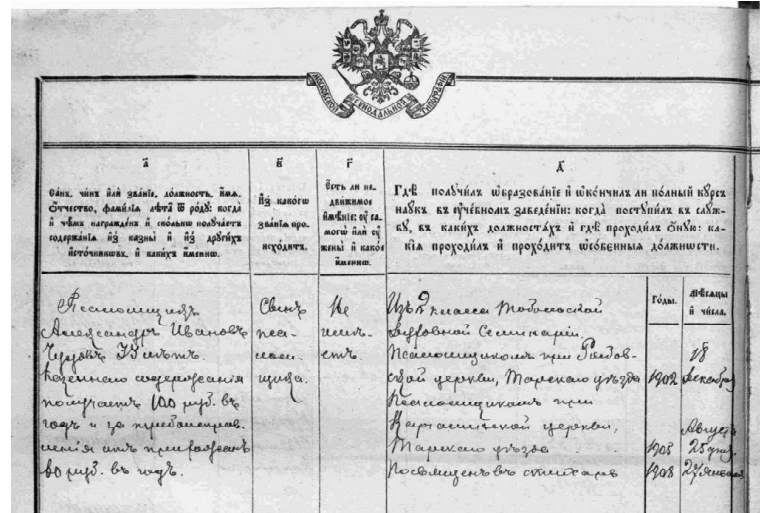 МОСКОВСКОЙ СѴНОДАЛЬНОЙ ТИПОГРАФІИ
а҃
Санъ, чинъ или званїе, должность, имя,
ѻтчество, фамилїя лѣта ѿ роду: когда
и чѣмъ награжденъ и сколько получаетъ
содержанїя изъ казны и изъ другихъ
источникѡвъ, и какихъ именнѡ.
в҃
Изъ какогѡ
званїя про-
исходитъ.
г҃
Есть ли не-
движимое
имѣнїе: ѹ са-
могѡ или ѹ
жены и какое
именнѡ.
д҃
Гдѣ получилъ ѡбразованїе и ѡкончилъ ли полный кѹрсъ
наукъ въ ѹчебномъ заведенїи: когда поступилъ въ служ-
бу, въ какихъ должностѧхъ и гдѣ проходилъ ѻную: ка-
кїя проходилъ и проходитъ ѡсобенныя должности.
Годы.
Мѣсяцы
и числа.
Псаломщикъ
Александръ Ивановъ
35 лѣтъ.
Казеннаго содержанія
получаетъ 100 руб. въ
годъ и за
отъ прихожанъ
80 руб. въ годъ.
Сынъ
пса-
лом-
щика.
Не
имѣ-
етъ.
Изъ 2 класса Тобольской
Духовной Семинаріи
Псаломщикомъ при
ской церкви, Тарскаго уѣзда
1902
18
декабря
Псаломщикомъ при
церкви,
Тарскаго уѣзда
1905
Августа
25 дня.
Посвященъ въ стихарь
1908
27 января